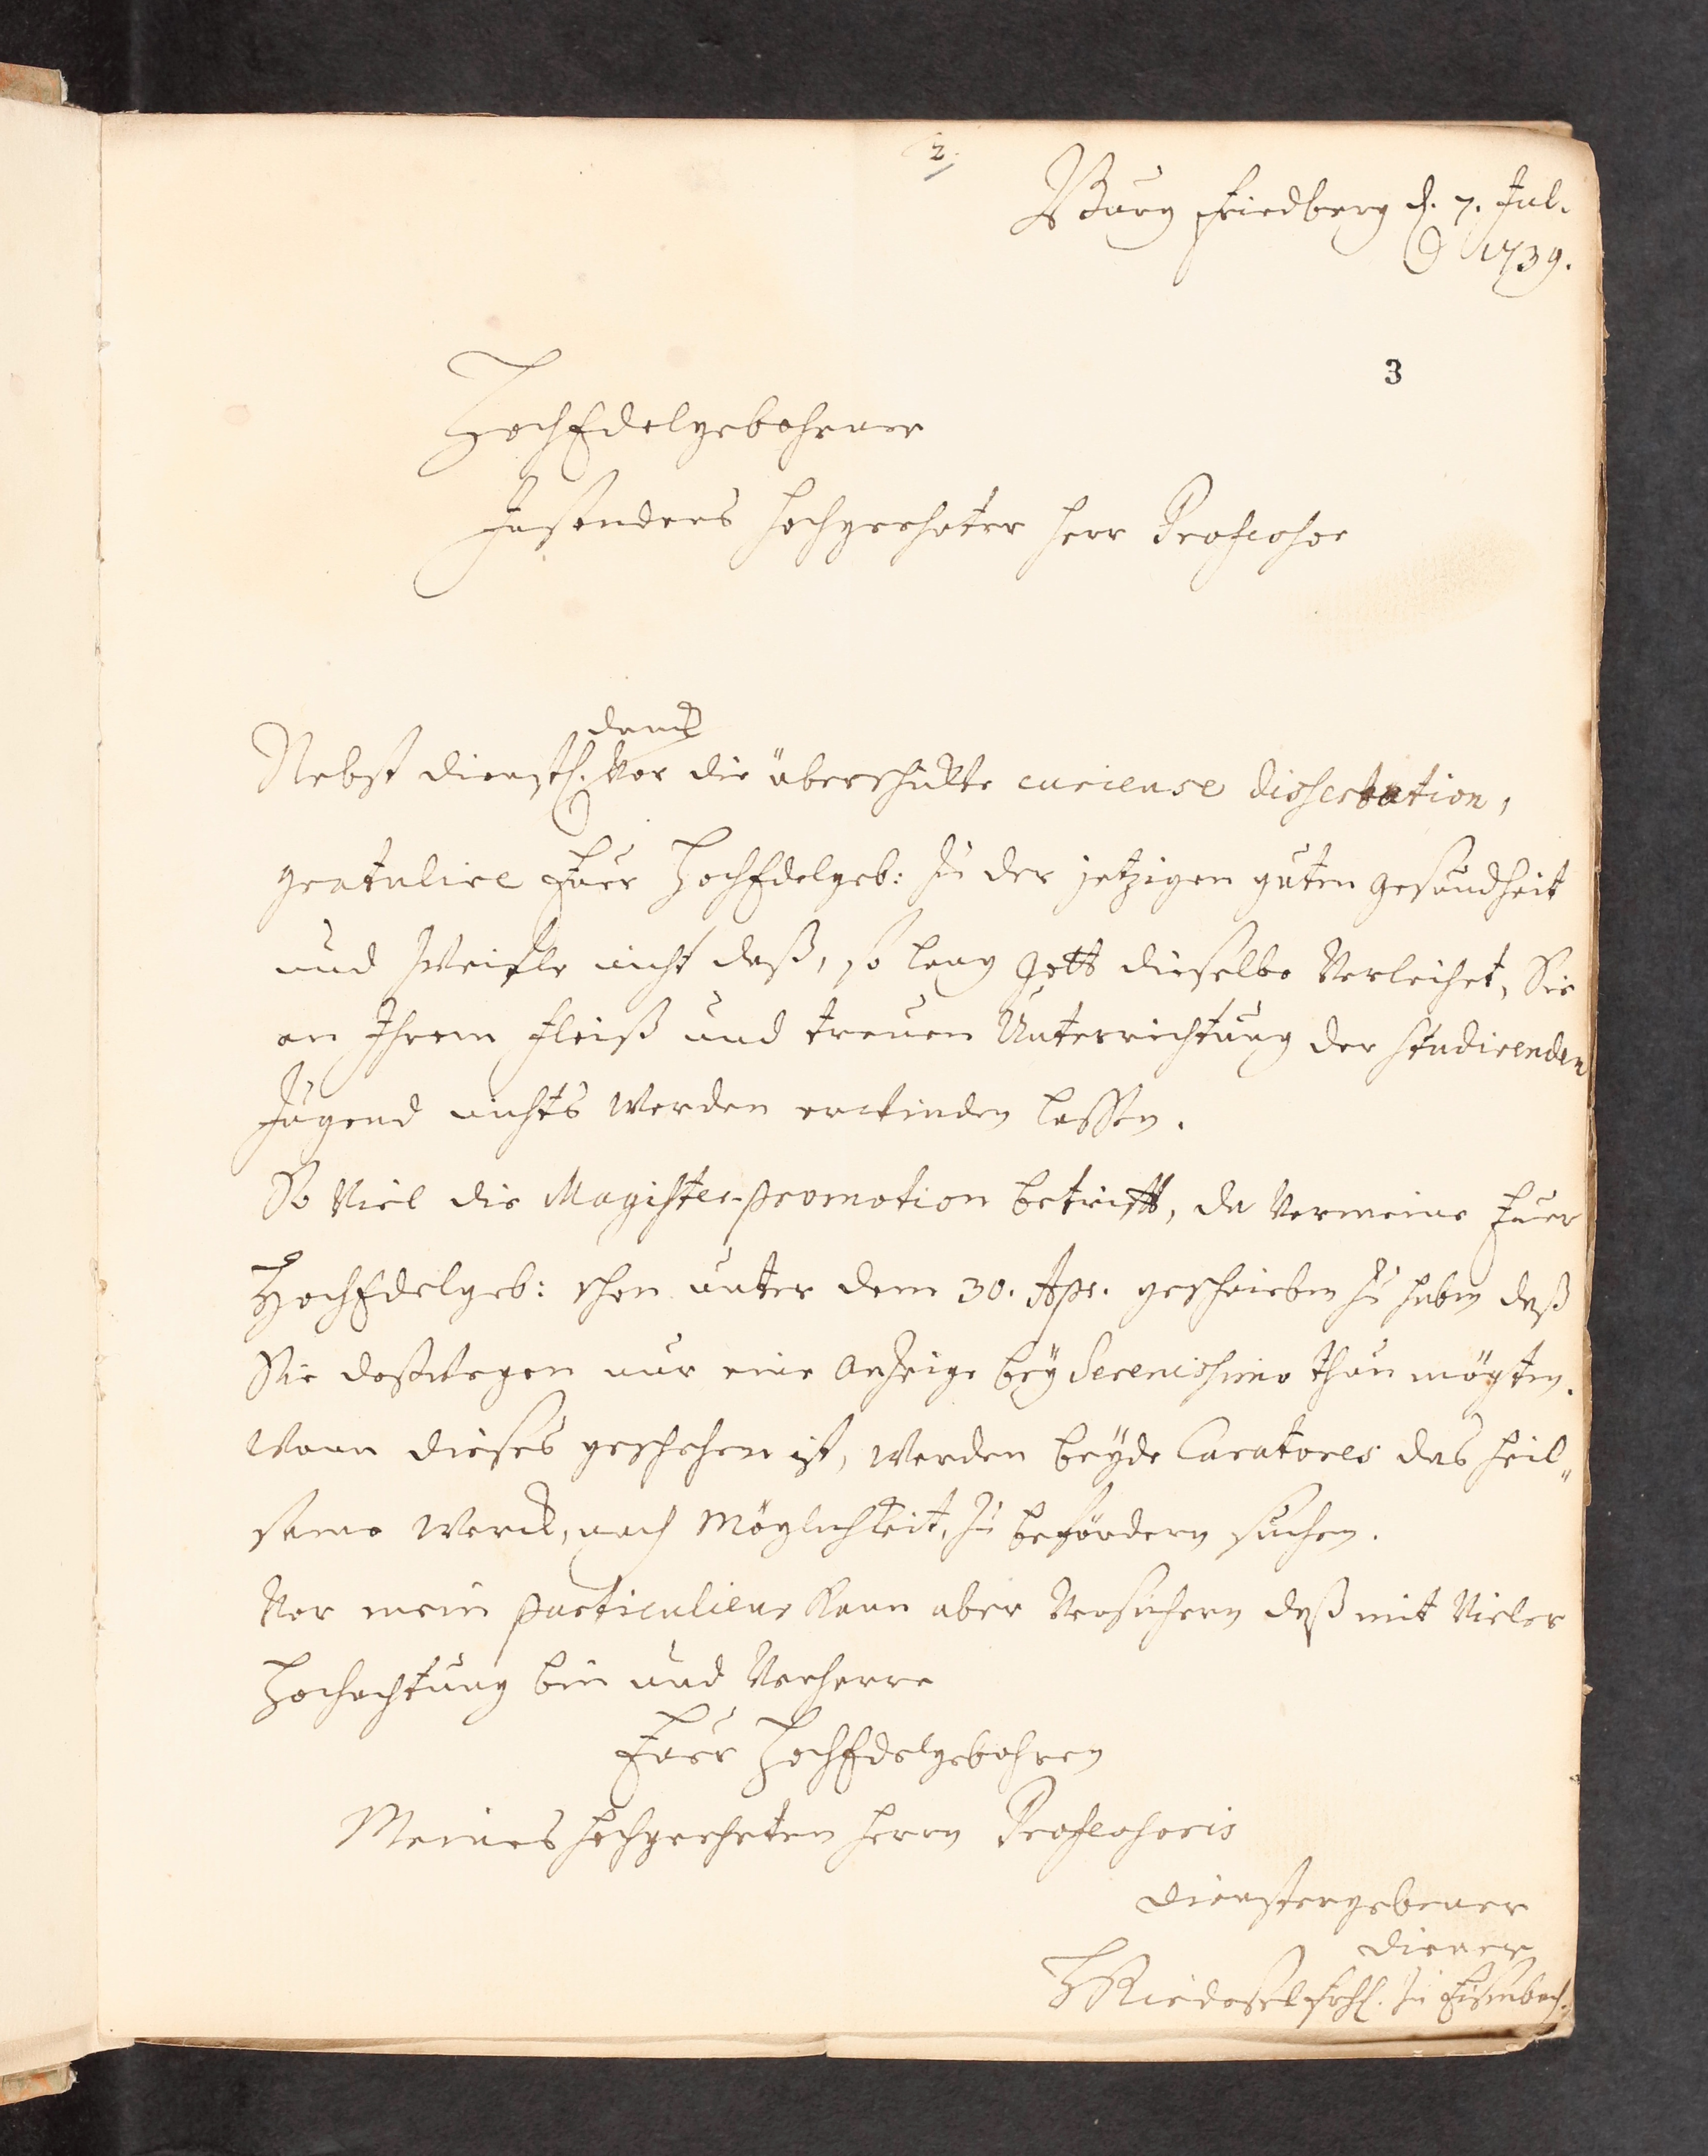 2.
Burg Friedberg d. 7. Jul.
1739.
3
HochEdelgebohrner
Insonders hochgeehrter Herr Professor
danck
Nebst dienstl. vor die überschickte curieuse dissertation,
gratulire Euer HochEdelgeb: zu der jetzigen guten gesundheit
und zweifle nicht daß, so lang Gott dieselbe verleihet, Sie
an Ihrem fleiß und treuen Unterrichtung der studirenden
Jugend nichts werden erwinden lassen.
So viel die Magister-promotion betrifft, da vermeine Euer
HochEdelgeb: schon unter dem 30. Apr. geschrieben zu haben daß
Sie deßwegen nur eine anzeige bey Serenissimo thun mögten.
wann dieses geschehen ist, werden beyde Curatores das heil„
same werck, nach möglichkeit, zu befördern suchen.
Vor mein particulier kann aber versichern daß mit vieler
Hochachtung bin und verharre
Euer HochEdelgebohren
Meines hochgeehrten Herrn Professoris
dienstergebener
diener
HRiedesel frhl. zu Eisenbach.